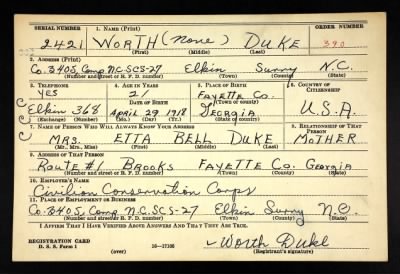 SERIAL NUMBER 1. NAME (Print) ORDER NUMBER
2421 WORTH (none) DUKE 390
(First) (Middle) (Last)
2. ADDRESS (Print)
Co. 3405, Comp. N.C. SCS-27 Elkin Surry N.C.
(Number and street or R. F. D. number) (Town) (County) (State)
3. TELEPHONE 4. AGE IN YEARS 5. PLACE OF BIRTH 6. COUNTRY OF CITIZENSHIP
YES 21 FAYETTE CO.
DATE OF BIRTH (Town or county)
Elkin 368 April 29 1918 GEORGIA U.S.A.
(Exchange) (Number) (Mo.) (Day) (Yr.) (State or country)
7. NAME OF PERSON WHO WILL ALWAYS KNOW YOUR ADDRESS 8. RELATIONSHIP OF THAT PERSON
MRS. ETTA BELL DUKE MOTHER
(Mr., Mrs., Miss) (First) (Middle) (Last)
9. ADDRESS OF THAT PERSON
ROUTE #1 BROOKS FAYETTE CO. GEORGIA
(Number and street or R. F. D. number) (Town) (County) (State)
10. EMPLOYER'S NAME
Civilian Conservation Corps
11. PLACE OF EMPLOYMENT OR BUSINESS
Co. 3405, Comp N.C. SCS-27 Elkin Surry N.C.
(Number and street or R. F. D. number) (Town) (County) (State)
I AFFIRM THAT I HAVE VERIFIED ABOVE ANSWERS AND THAT THEY ARE TRUE.
REGISTRATION CARD
D. S. S. Form 1 (over) 16—17105 Worth Duke
(Registrant's signature)